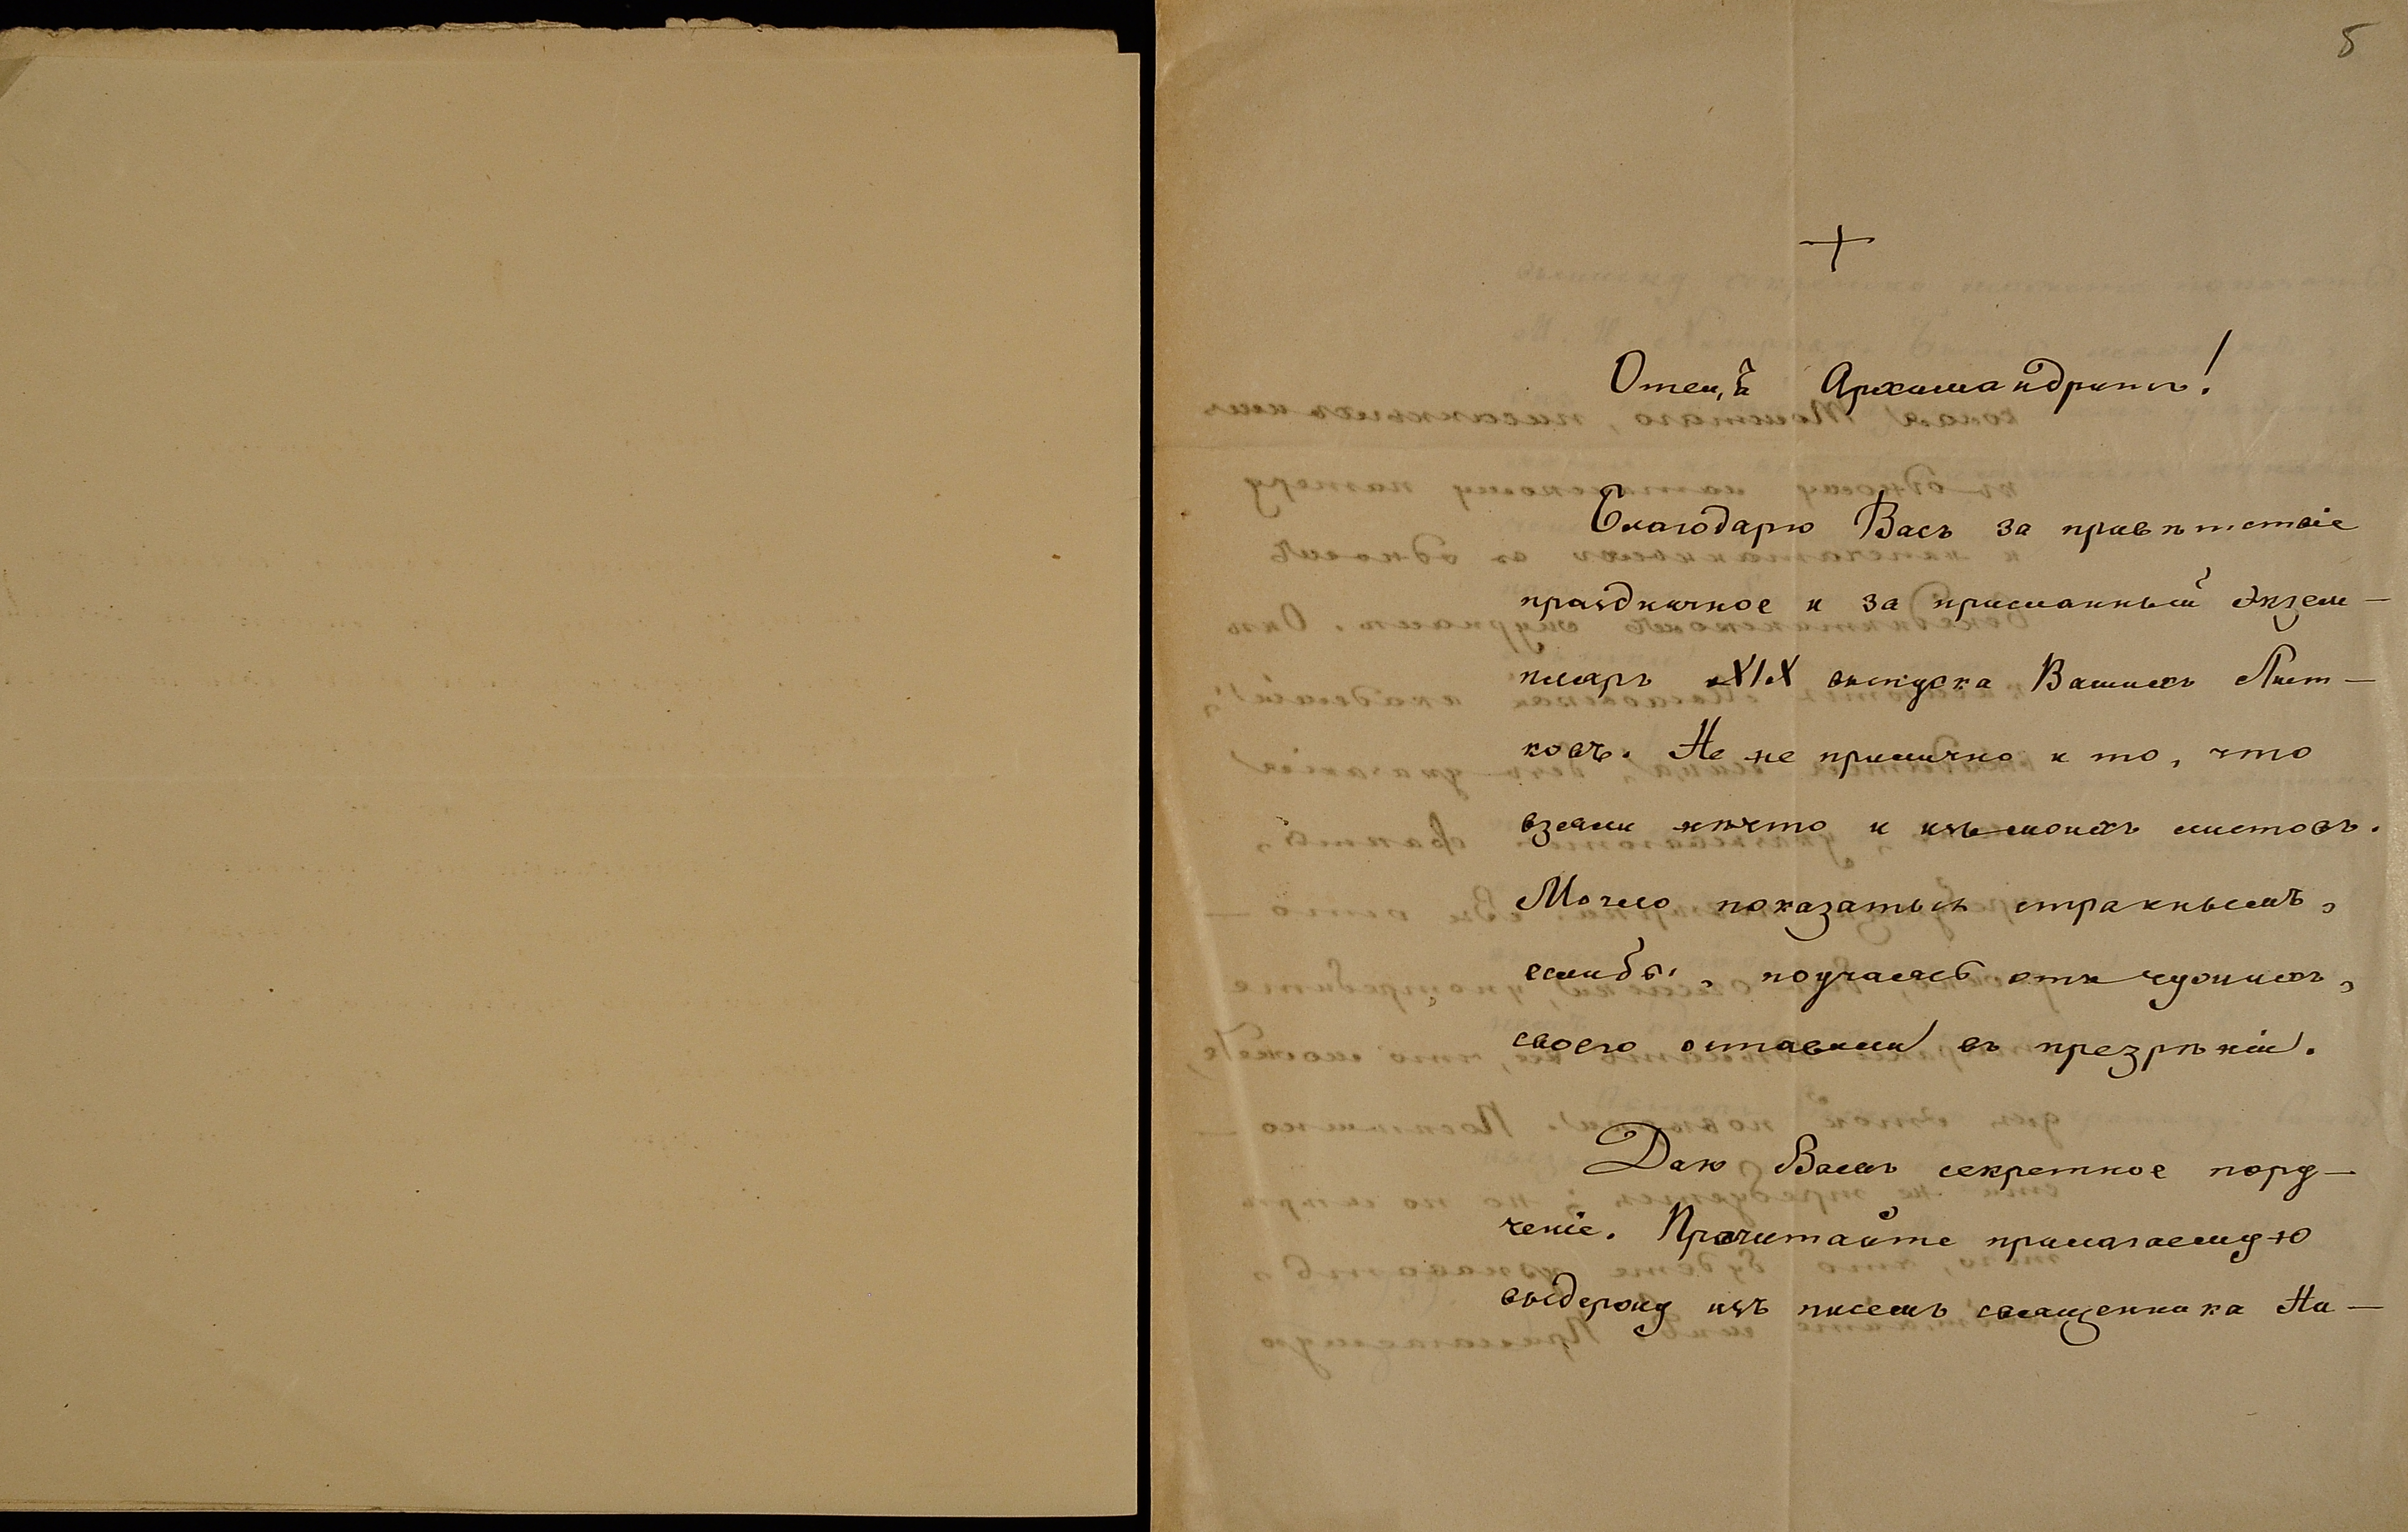 5
+
Отецъ Архимандритъ!
Благодарю Васъ за привѣтствіе
праздничное и за присланный экзем-
пляръ XIX выпуска Вашихъ Лист-
ковъ. Не не прилично и то, что
взяли нѣчто и изъ моихъ листовъ.
Могло показаться страннымъ,
еслибы, поучаясь отъ чужихъ,
своего оставили въ презрѣніи.
Даю Вамъ секретное пору-
ченіе. Прочитайте прилагаемую
выдержку изъ писемъ священника Ни-